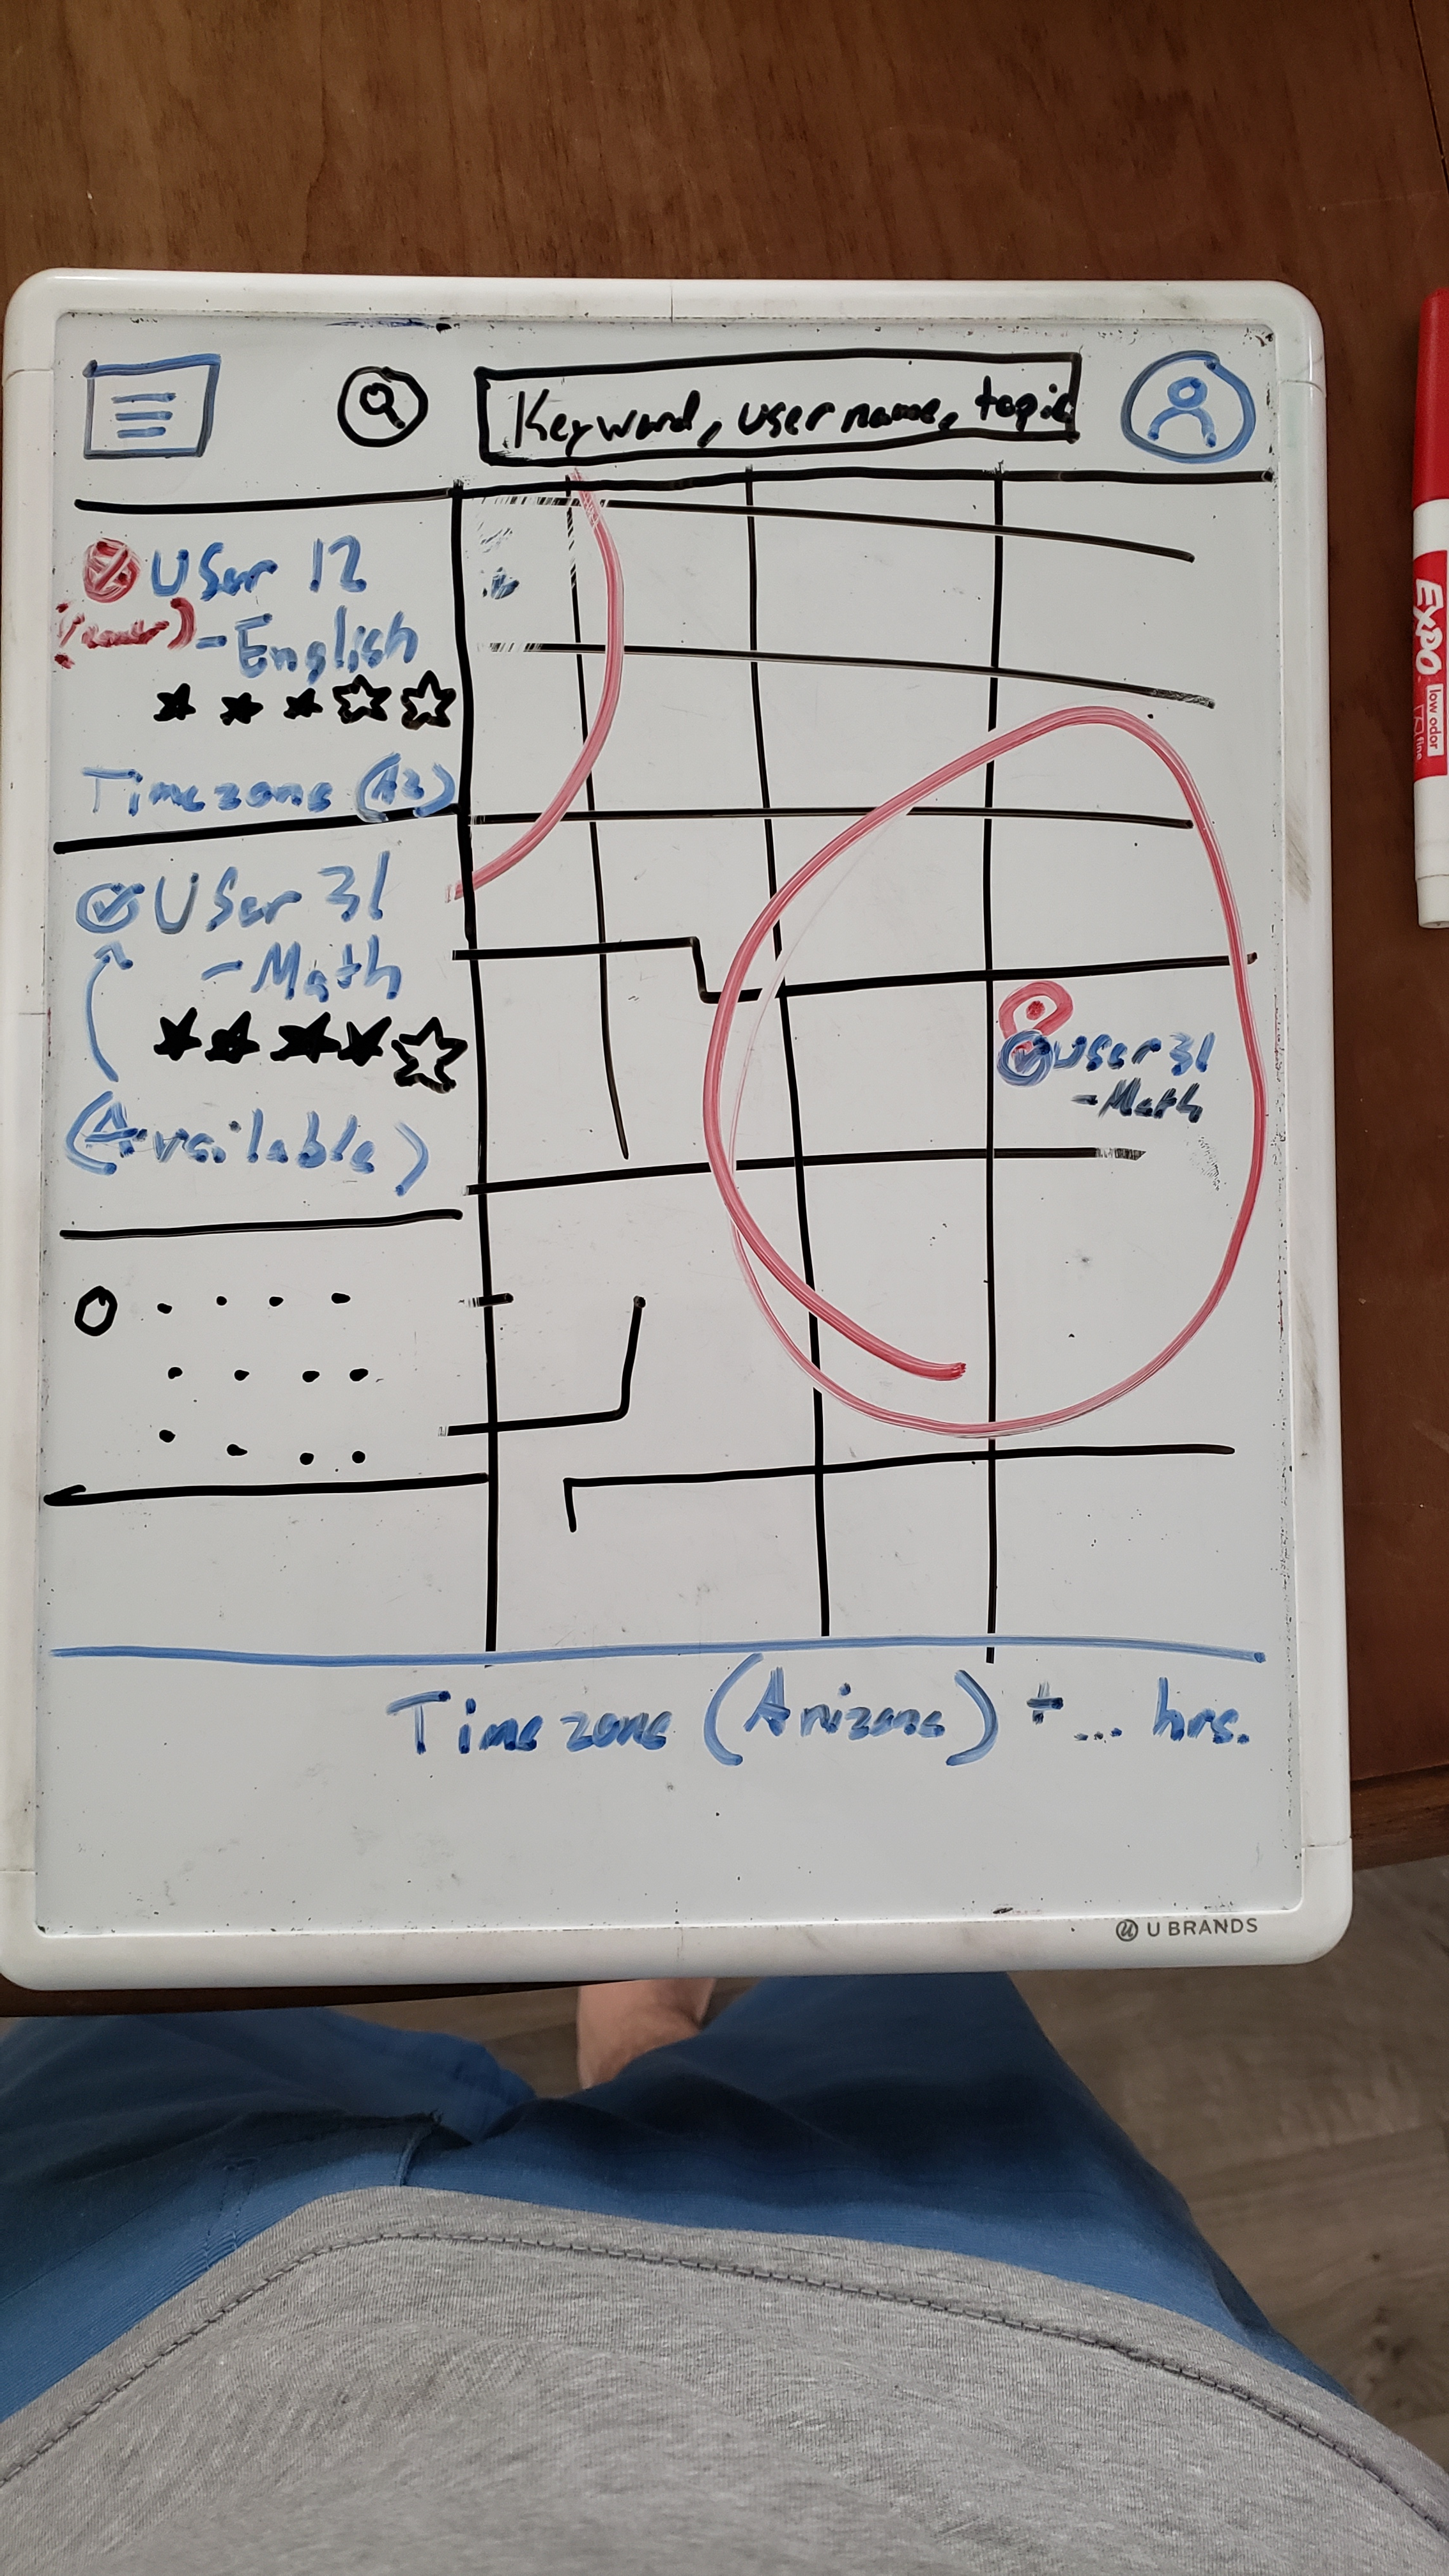 Keyword, username, topic
User 12
-English
Timezone (AZ)
User 31
-Math
(Available)
User 31
-Math
Timezone (Arizona) + ... hrs.
U BRANDS
EXPO
low odor
fine